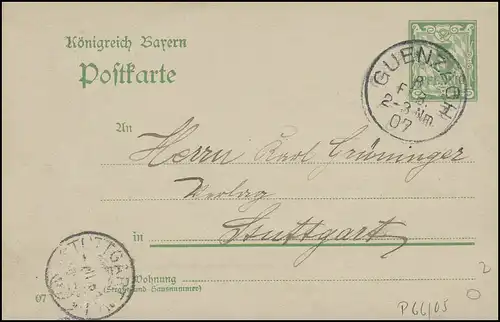 Königreich Bayern
Postkarte
GUENZACH
8
F B.
2-3 Nm
07
An
Herrn Karl Grüninger
Verlag
in Stuttgart
STUTTGART
Wohnung
(Straße und Hausnummer)
07
P66/05
2